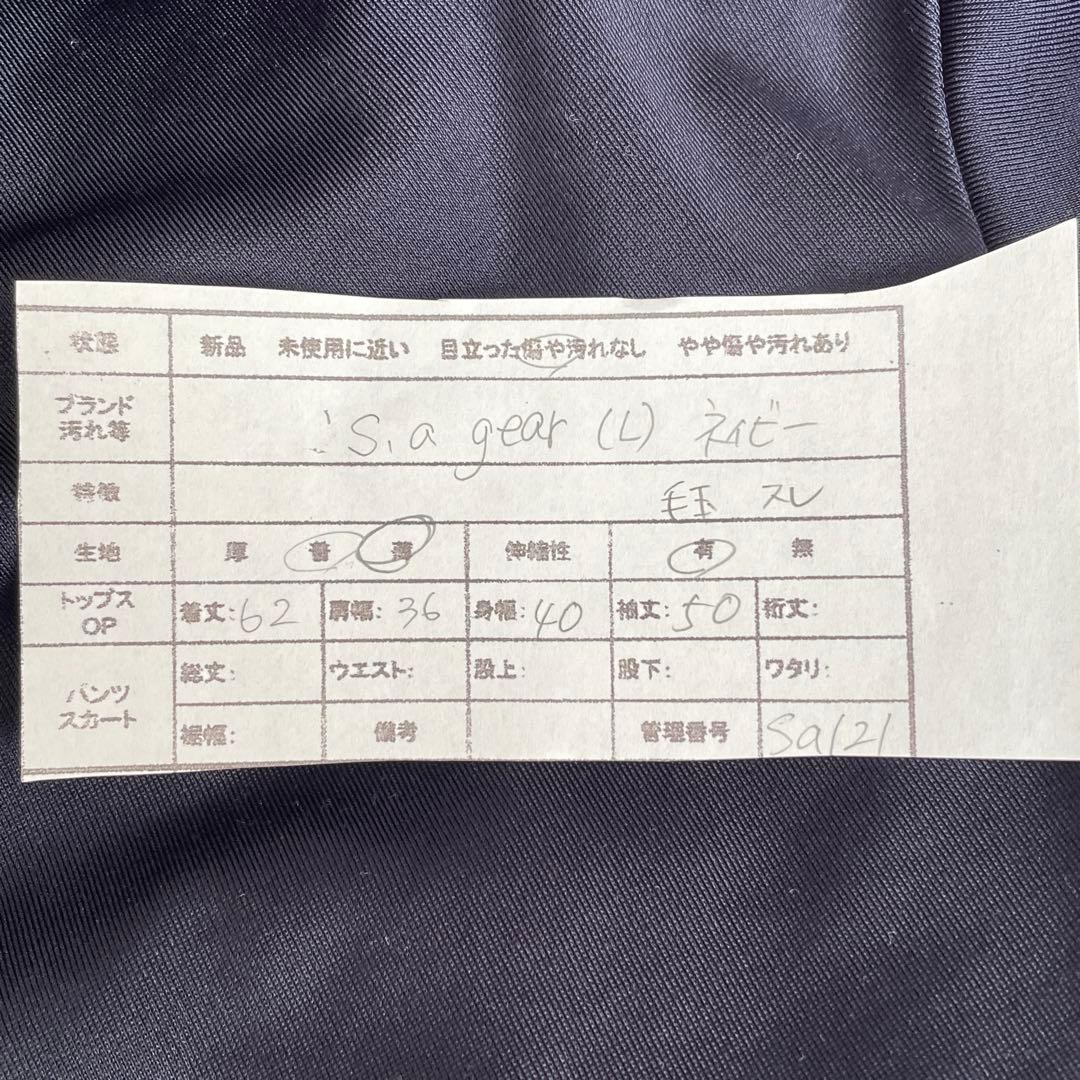 状態 新品 未使用に近い 目立った傷や汚れなし やや傷や汚れあり
ブランド
汚れ等
S.a gear (L) ネイビー
特徴 毛玉 スレ
生地 厚 普 薄 伸縮性 有 無
トップス
OP
着丈:62 肩幅:36 身幅:40 袖丈:50 裄丈:
パンツ
スカート
総丈: ウエスト: 股上: 股下: ワタリ:
裾幅: 備考 管理番号 Sa121